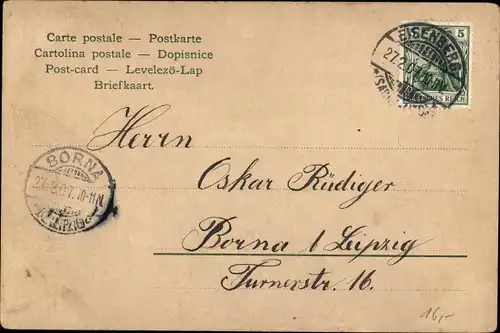 Carte postale — Postkarte
Cartolina postale — Dopisnice
Post-card — Levelezö-Lap
Briefkaart.
EISENBERG
27.2.
5
REICH
Herrn
BORNA
Oskar Rüdiger
Borna b/Leipzig
Turnerstr. 16.
16,-